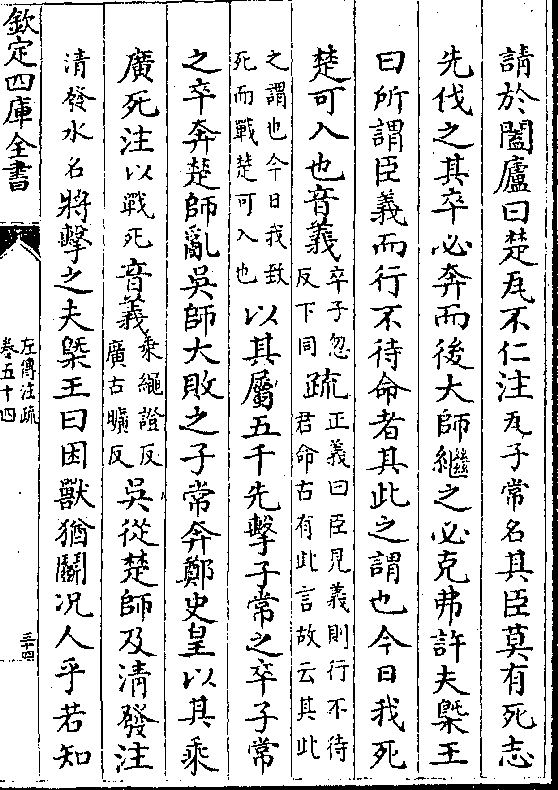 請於闔廬曰楚瓦不仁注瓦子常名其臣莫有死志
先伐之其卒必奔而後大師繼之必克弗許夫槩王
曰所謂臣義而行不待命者其此之謂也今日我死
楚可入也音義卒子忽反下同疏正義曰臣見義則行不待君命古有此言故云其此
之謂也今日我致死而戰楚可入也以其屬五千先擊子常之卒子常
之卒奔楚師亂吳師大敗之子常奔鄭史皇以其乘
廣死注以戰死音義乘繩證反廣古曠反吳從楚師及清發注
清發水名將擊之夫槩王曰困獸猶鬭况人乎若知
欽定四庫全書
左傳注疏
卷五十四
三十四